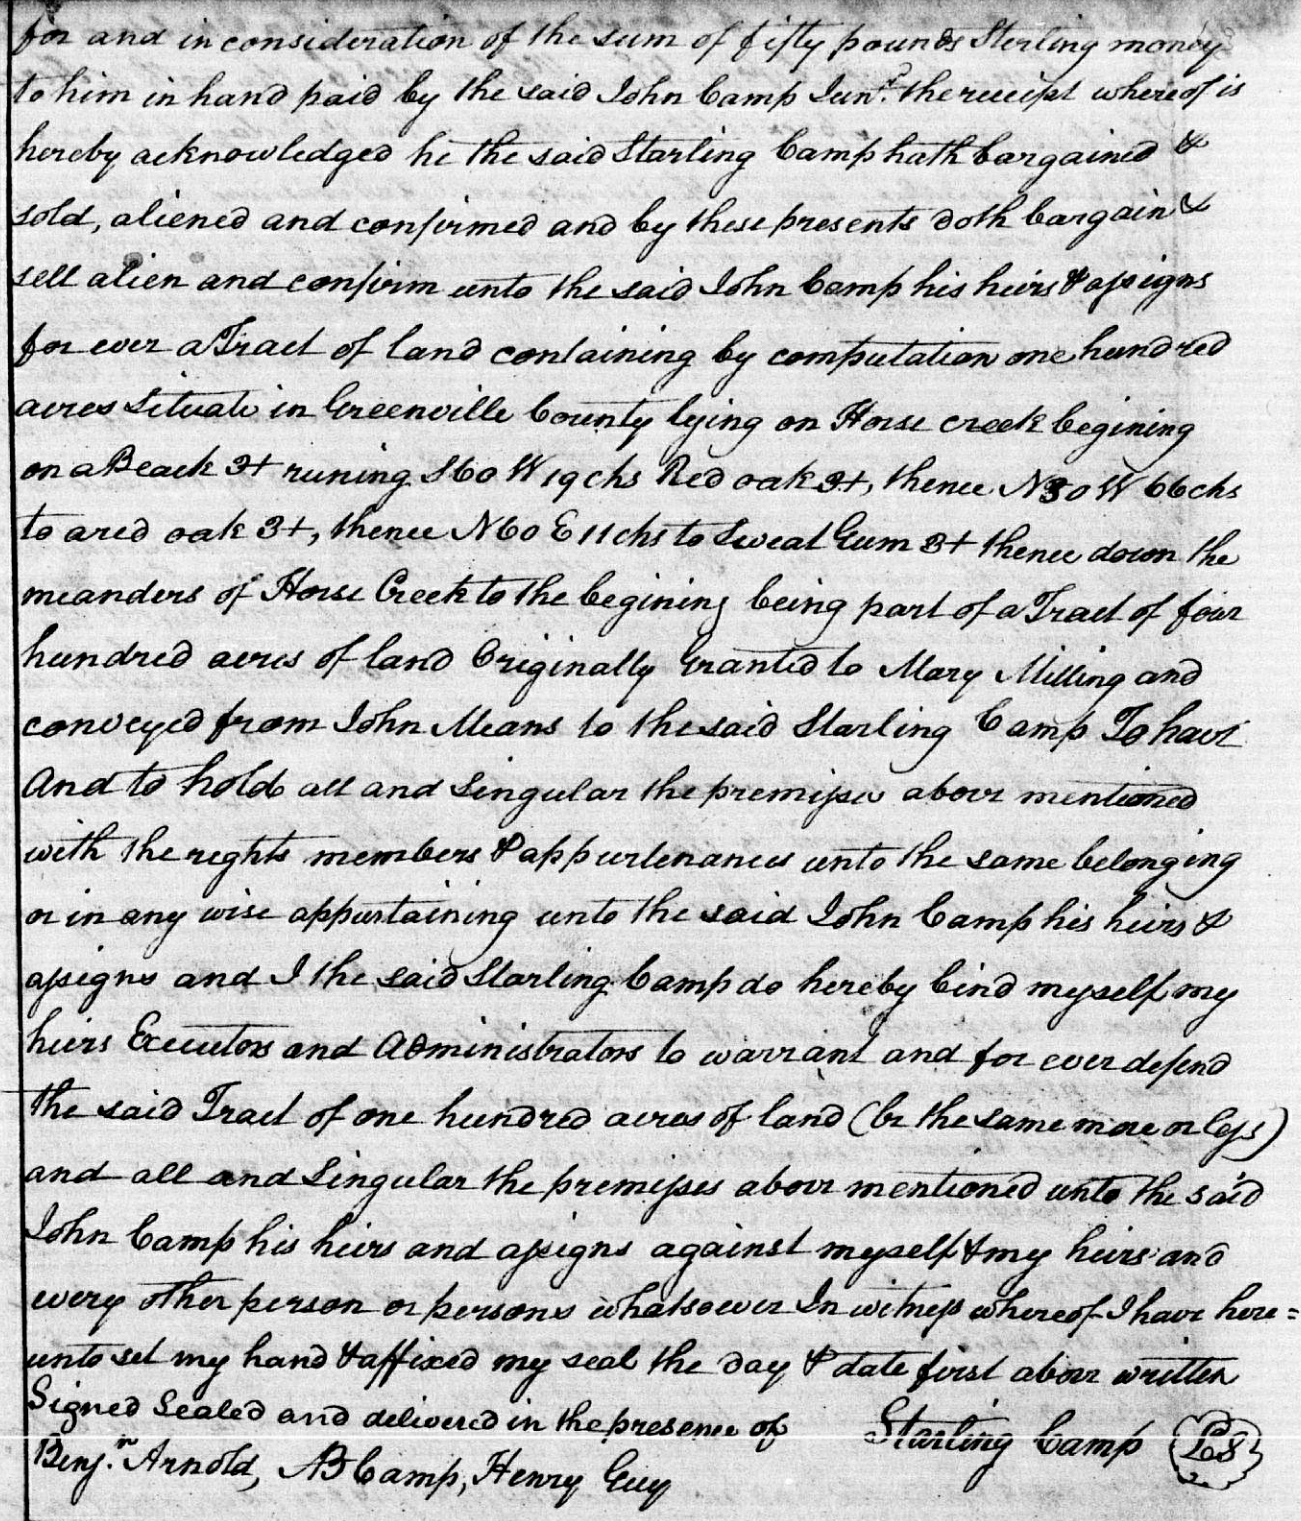 for and in consideration of the sum of fifty pounds Sterling money
to him in hand paid by the said John Camp Junr. the receipt whereof is
hereby acknowledged he the said Starling Camp hath bargained &
sold, aliened and confirmed and by these presents doth bargain &
sell alien and confirm unto the said John Camp his heirs & assigns
for ever a Tract of land containing by computation one hundred
acres Situate in Greenville County lying on Horse creek begining
on a Beach 3+ runing S60 W 19 chs Red oak 3+, thence N30 W 66 chs
to a red oak 3+, thence N60 E 11 chs to Sweat Gum 3+ thence down the
meanders of Horse Creek to the begining being part of a Tract of four
hundred acres of land Originally Granted to Mary Milling and
conveyed from John Means to the said Starling Camp To have
And to hold all and Singular the premises above mentioned
with the rights members & appurtenances unto the same belonging
or in any wise appurtaining unto the said John Camp his heirs &
assigns and I the said Starling Camp do hereby bind myself my
heirs Executors and Administrators to warrant and for ever defend
the said Tract of one hundred acres of land (be the same more or less)
and all and Singular the premises above mentioned unto the said
John Camp his heirs and assigns against myself & my heirs and
every other person or persons whatsoever In witness whereof I have here=
unto set my hand & affixed my seal the day & date first above written
Signed Sealed and delivered in the presence of Starling Camp LS
Benjn. Arnold, AB Camp, Henry Guy